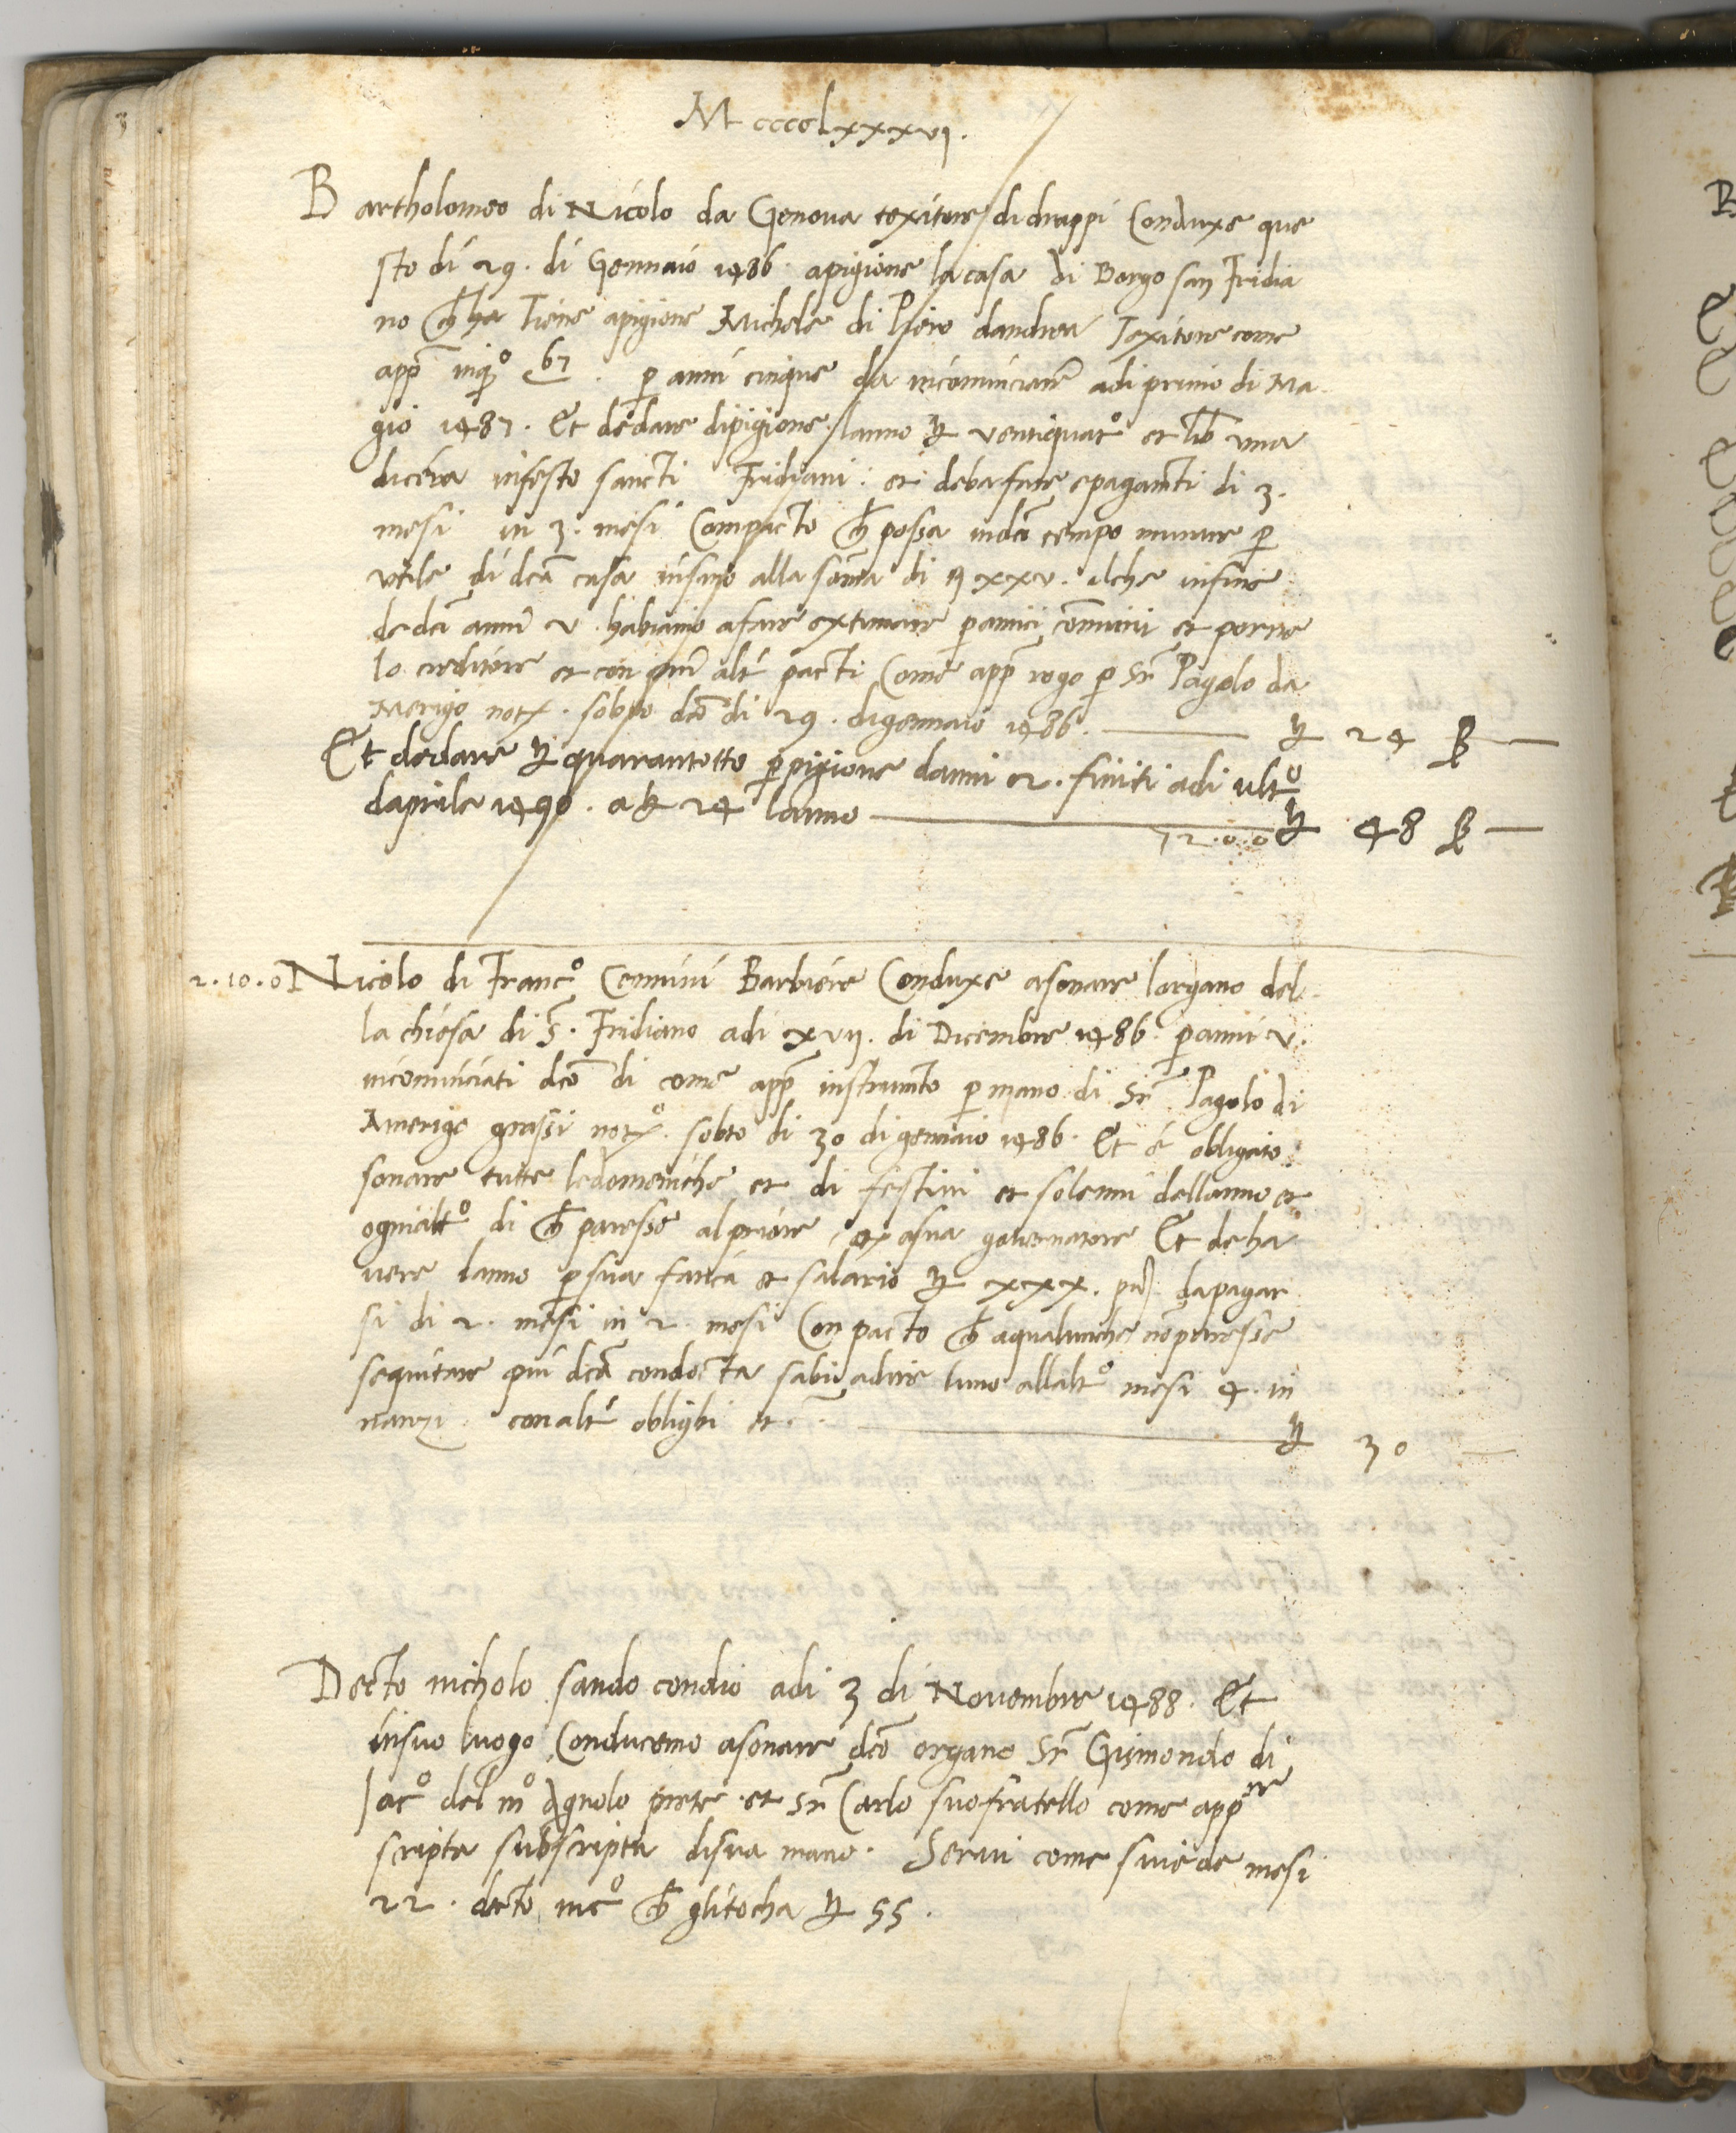 Mcccclxxxvij.
Bartholomeo di Nicolo da Genova texitore di drappi Conduxe que
sto dí 29. di Gennaio 1486. apigione la casa di Borgo san Fridia
no ch̄ ha Tiene apigione Michele di Piero dandrea Texitore come
app̄ inq̄o 67. p anni cinque da incominciare adi primo di Ma
gio 1487. Et dedare dipigione lanno ꝟ ventiquat° et lib̄ una
dicera infesto sancti Fridiani: et debafare epagam̄ti di 3.
mesi in 3. mesi Compacto ch̄ possa indc̄i tempo murare p
utile di dc̄a casa insino alla som̄a di ꝟ xxv. elche infine
dedc̄i anni v. habiamo afare extimare pamici com̄uni et porre
lo creditore et con altí pacti Come app̄ rogo p Sr̄ Pagolo da
Merigo not. sobto dc̄o di 29. digennaio 1486. ꝟ 24 ß —
Et dedare ꝟ quarantotto p pigione danni 2. finiti adi ult°
daprile 1490. a ꝟ 24 lanno 72.0.0 ꝟ 48 ß —
2.10.0 Nicolo di Franc° Cennini Barbiere Conduxe asonare lorgano del
la chiesa di S̄. Fridiano adi xvij. di Dicembre 1486. p anni v.
incominciati dc̄o di come app̄ instrum̄to p mano di Sr̄ Pagolo di
Amerigo grassi not°. sobto di 30 di gennaio 1486. Et é obligato
sonare tutte ledomeniche et di festivi et solenni dellanno et
ognialt° di ch̄ paresse alpriore, o asua governatore Et deha
vere lanno p sua fatica et salario ꝟ xxx. dapagar
si di 2. mesi in 2. mesi Con pacto ch̄ aqualunche nō paresse
sequitare piu dc̄a condocta sabi adire luno allalt° mesi 4. in
nanzi. con altí oblighi et. ꝟ 30 —
Decto nicholo sando condio adi 3 di Novembre 1488. Et
insuo luogo Conducemo asonare dc̄o organo Sr̄ Gismondo di
Iac° del m° Agnolo prete et Sr̄ Carlo suofratello come app re
scripta subscripta disua mano. Servi come sivede mesi
22. decto nic° ch̄ glitocha ꝟ 55.